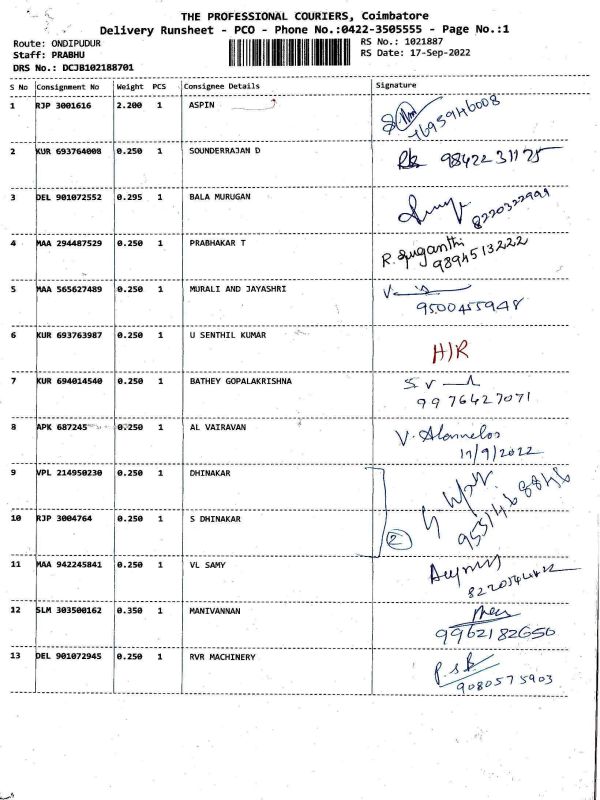 THE PROFESSIONAL COURIERS, Coimbatore
Delivery Runsheet - PCO - Phone No.:0422-3505555 - Page No.:1
Route: ONDIPUDUR RS No.: 1021887
Staff: PRABHU RS Date: 17-Sep-2022
DRS No.: DCJB102188701
S No Consignment No Weight PCS Consignee Details Signature
1 RJP 3001616 2.200 1 ASPIN
2 KUR 693764008 0.250 1 SOUNDERRAJAN D 9842231175
3 DEL 901072552 0.295 1 BALA MURUGAN 8220322999
4 MAA 294487529 0.250 1 PRABHAKAR T R. Suganthi
9894513222
5 MAA 565627489 0.250 1 MURALI AND JAYASHRI
9500455948
6 KUR 693763987 0.250 1 U SENTHIL KUMAR H/R
7 KUR 694014540 0.250 1 BATHEY GOPALAKRISHNA
9976427071
8 APK 687245 0.250 1 AL VAIRAVAN V. Alamelos
17/9/2022
9 VPL 214950230 0.250 1 DHINAKAR
10 RJP 3004764 0.250 1 S DHINAKAR 2
11 MAA 942245841 0.250 1 VL SAMY
12 SLM 303500162 0.350 1 MANIVANNAN
9962182656
13 DEL 901072945 0.250 1 RVR MACHINERY
9080575903